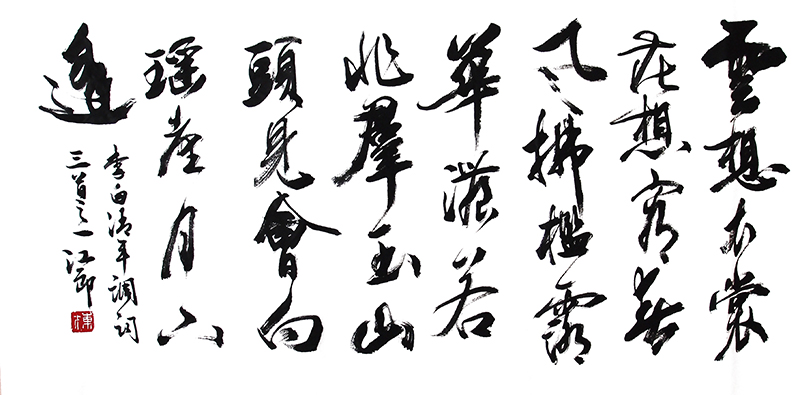 雲想衣裳
花想容春
风拂檻露
華濃若
非群玉山
頭見會向
瑶臺月下
逢
李白清平調詞
三首之一 江郎